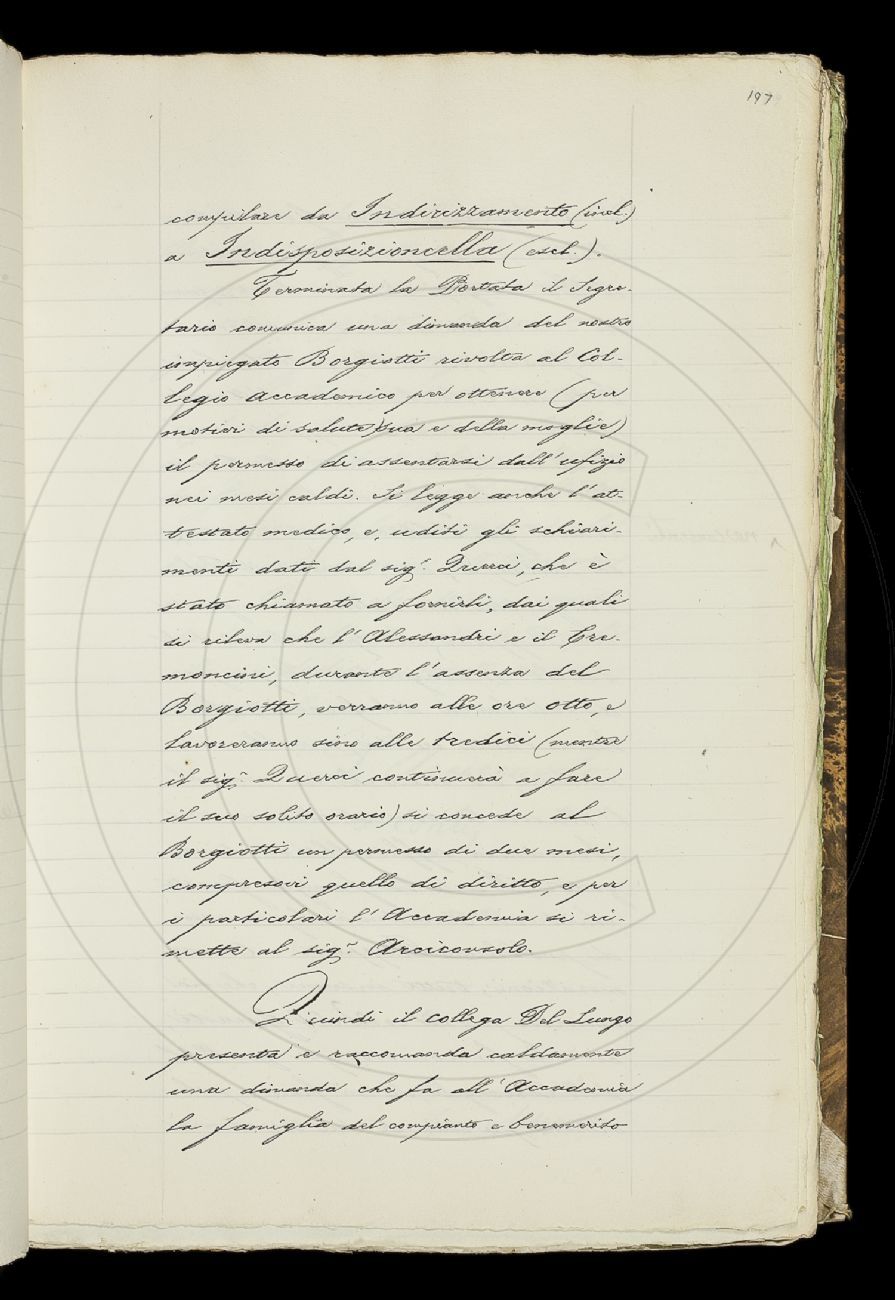 197
compilare da Indirizzamento (incl.)
a Indisposizioncella (escl.).
Terminata la Portata il Segre-
tario comunica una dimanda del nostro
impiegato Borgiotti rivolta al Col-
legio Accademico per ottenere (per
motivi di salute sua e della moglie)
il permesso di assentarsi dall'ufizio
nei mesi caldi. Si legge anche l'at-
testato medico, e, uditi gli schiari-
menti dati dal sig.r Querci, che è
stato chiamato a fornirli, dai quali
si rileva che l'Alessandri e il Cre-
moncini, durante l'assenza del
Borgiotti, verranno alle ore otto, e
lavoreranno sino alle tredici (mentre
il sig.r Querci continuerà a fare
il suo solito orario) si concede al
Borgiotti un permesso di due mesi,
compresovi quello di diritto, e per
i particolari l'Accademia si ri-
mette al sig.r Arciconsolo.
Quindi il collega Del Lungo
presenta e raccomanda caldamente
una dimanda che fa all'Accademia
la famiglia del compianto e benemerito